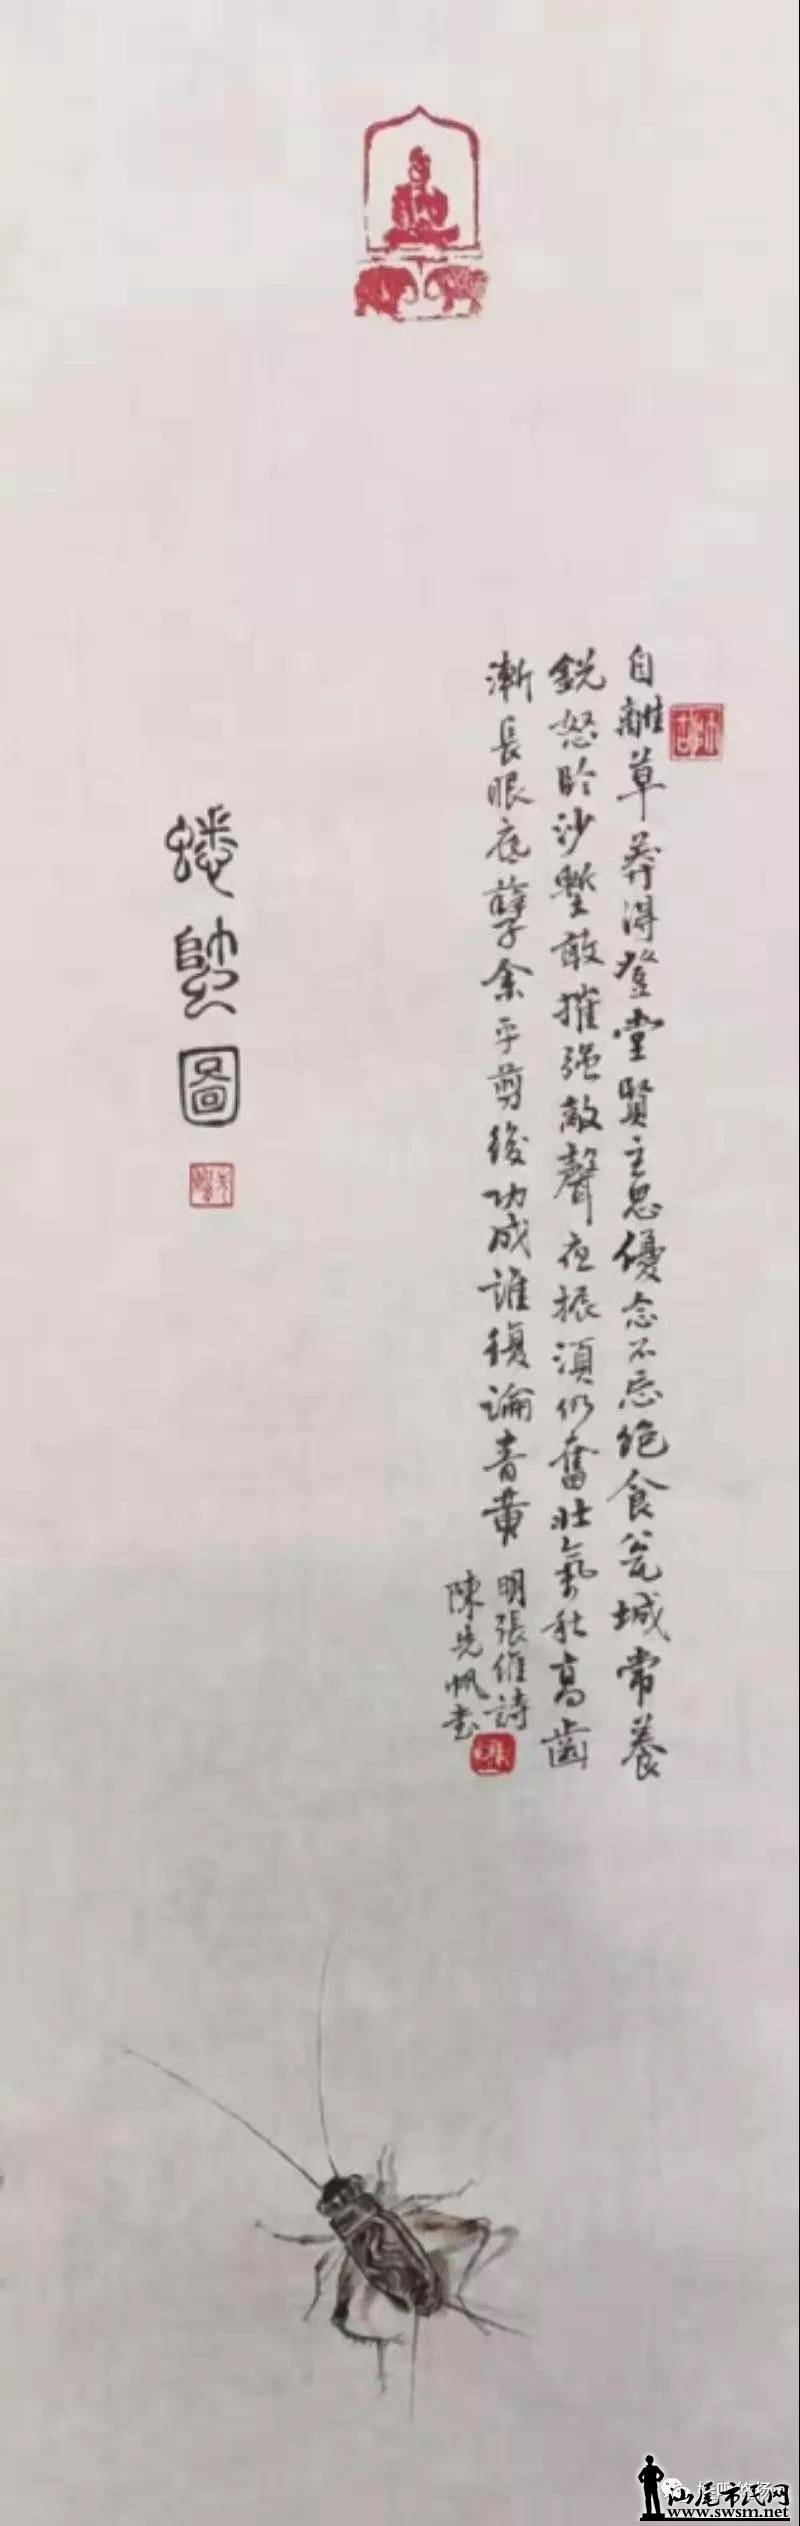 自離草莽得登堂賢主恩優念不忘飽食瓮城常養
銳怒臨沙塹敢摧强敵聲夜振須仍奮壯氣秋高齒
漸長眼底孽余平剪後功成誰復論青黄
明張維詩
陳先帆書
蟋蟀圖
汕尾市民网
www.swsm.net